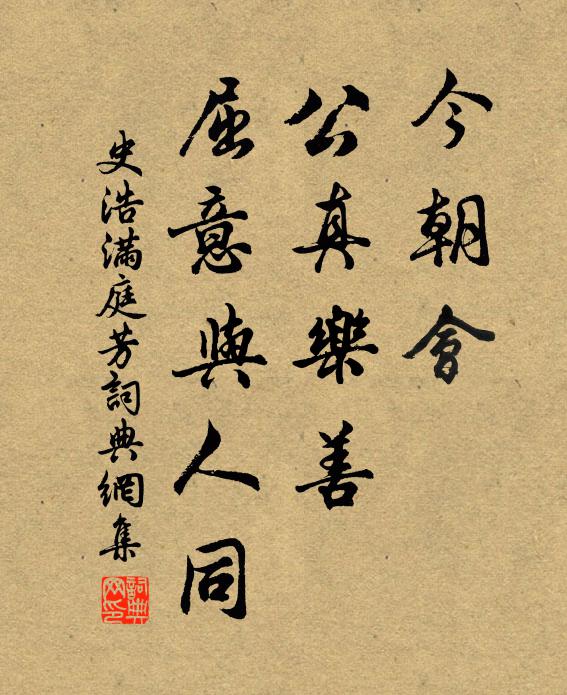 今朝會
公真樂善
屈意與人同
史浩滿庭芳詞典網集
詞典網印